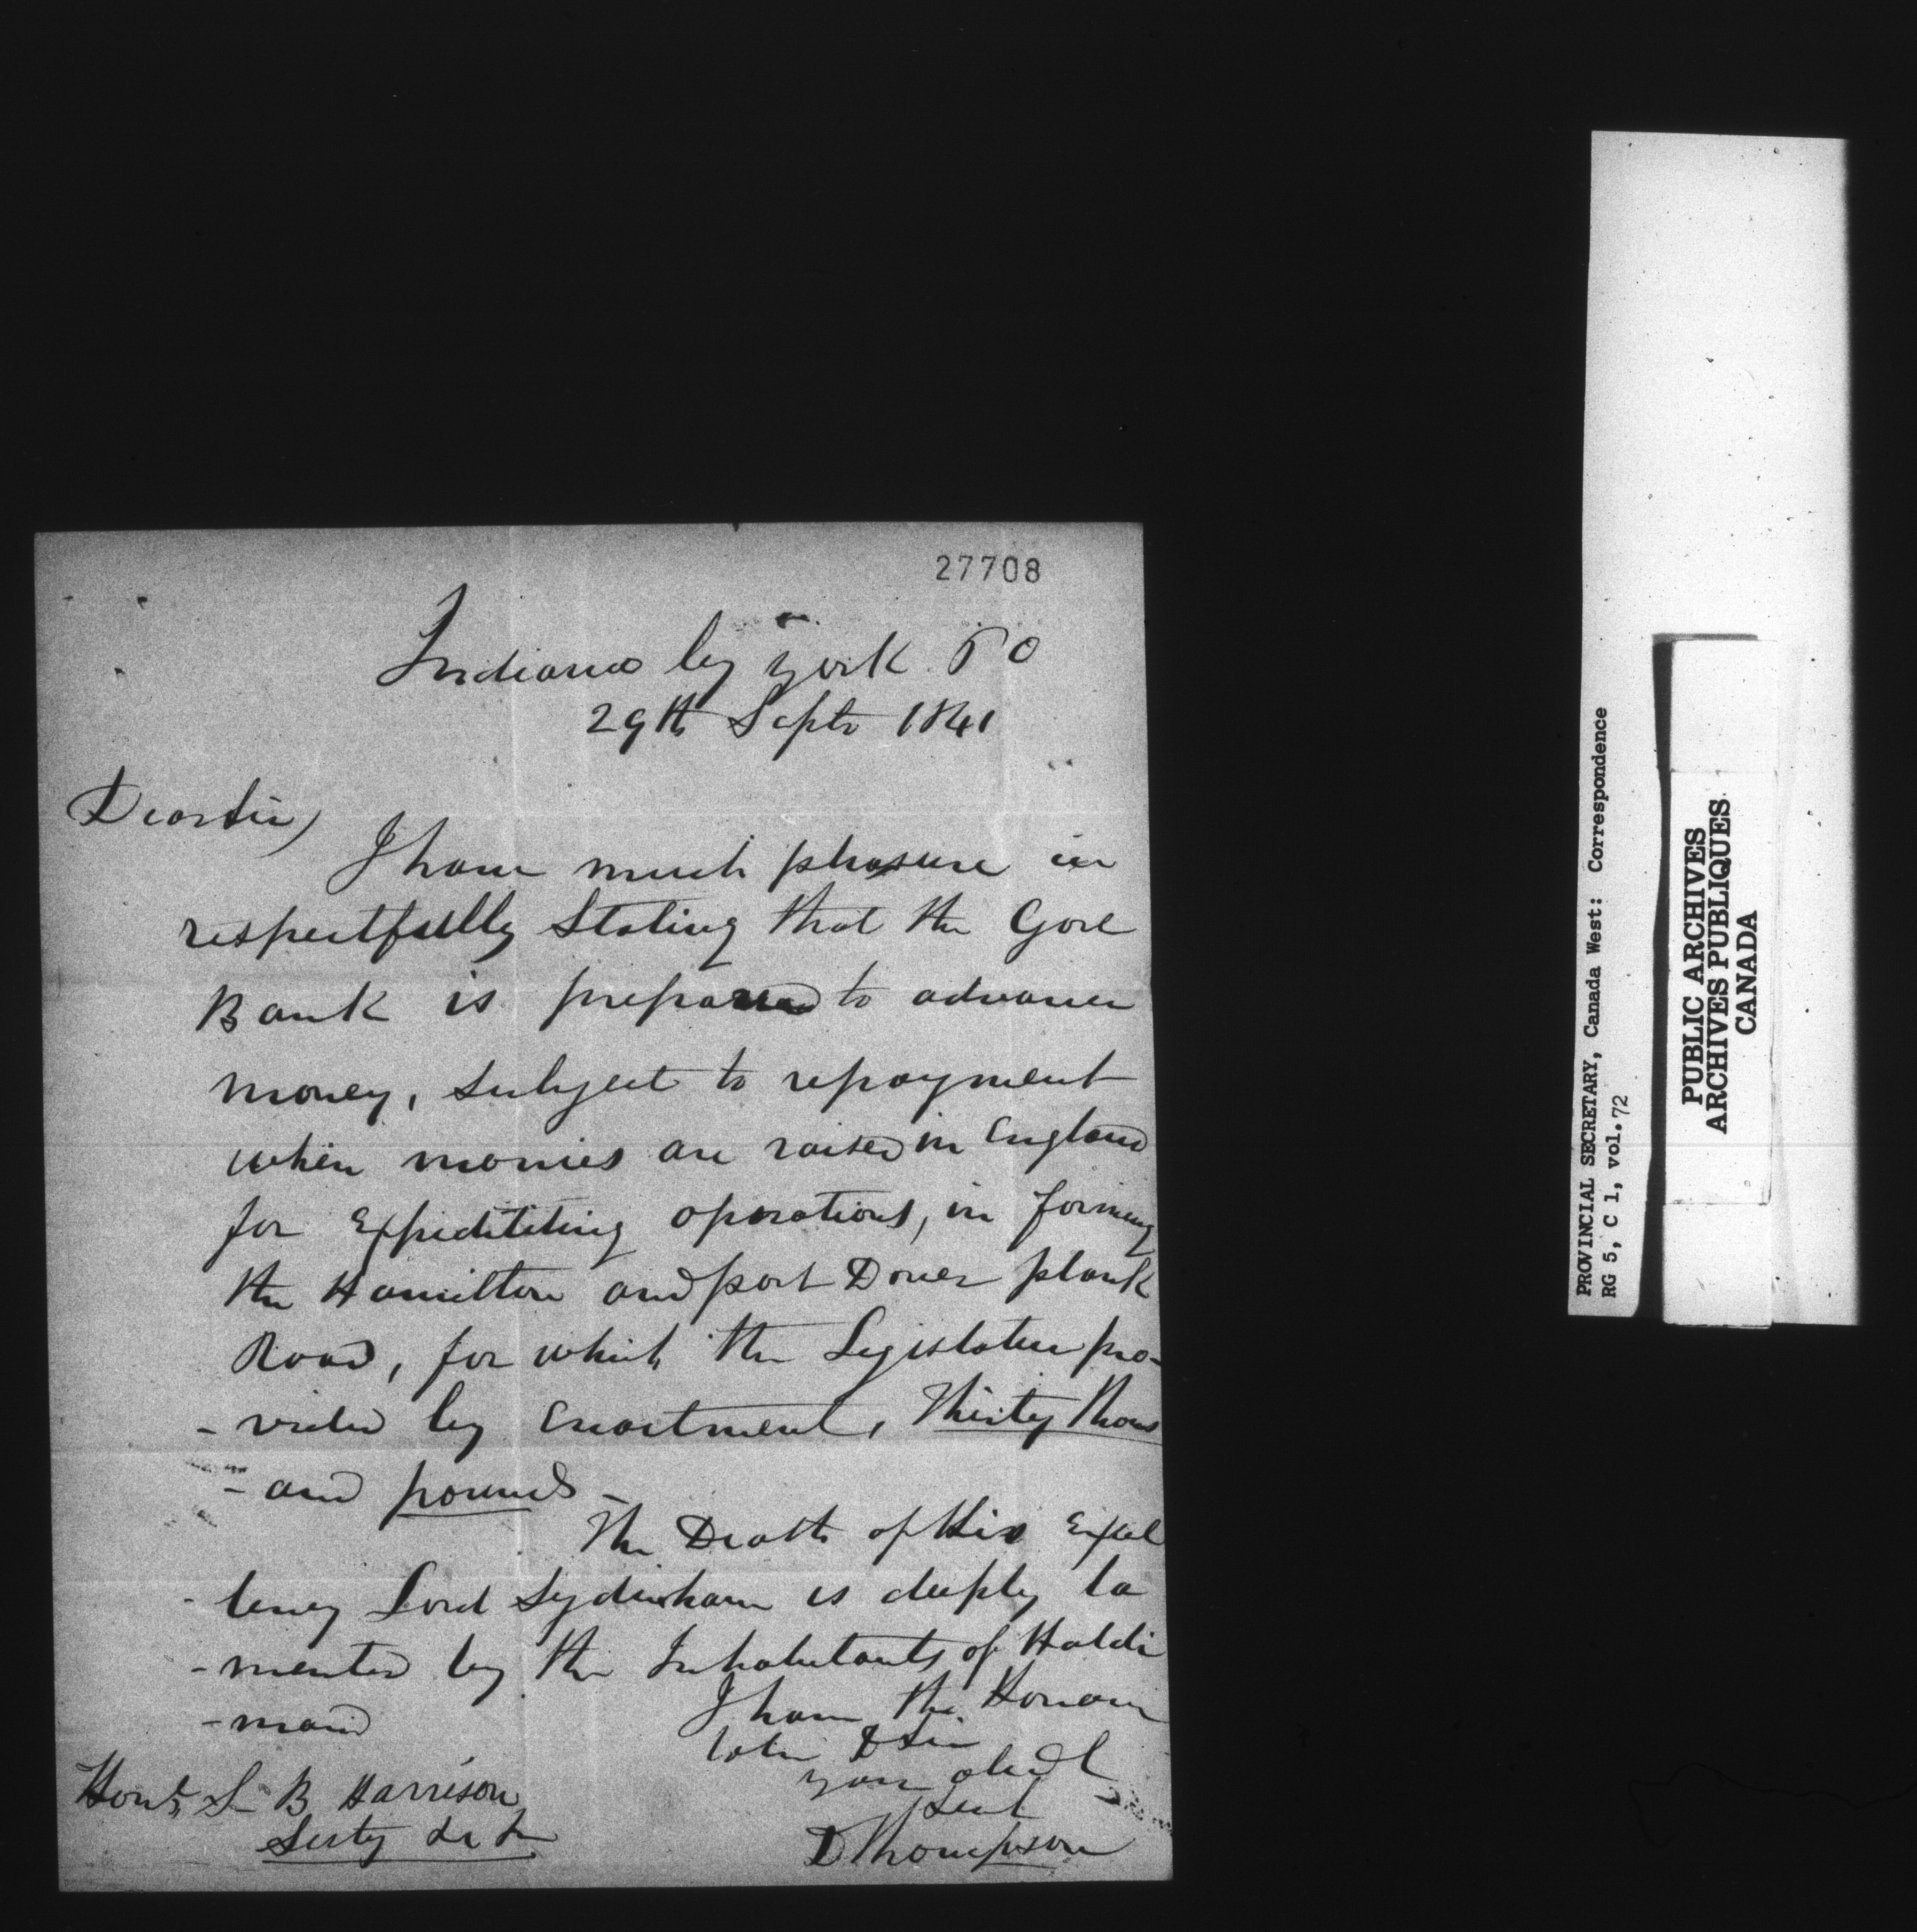 27708
Indiana by York P O
29th Septr 1841
Dear Sir,
I have much pleasure in
respectfully Stating that the Gore
Bank is prepared to advance
money, subject to repayment
when monies are raised in England
for Expedititing operations, in forming
the Hamilton and port Dover plank
Road, for which the Legislature pro-
- vided by Enactment, Thirty Thous
- and pounds -
The Death of His Excel
- lency Lord Sydenham is deeply la
- mented by the Inhabitants of Haldi
- mand
I have the Honour
to be D Sir
your obedt
Sert
D Thompson
Honble S B Harrison
PROVINCIAL SECRETARY, Canada West: Correspondence
RG 5, C 1, vol. 72
PUBLIC ARCHIVES
ARCHIVES PUBLIQUES
CANADA